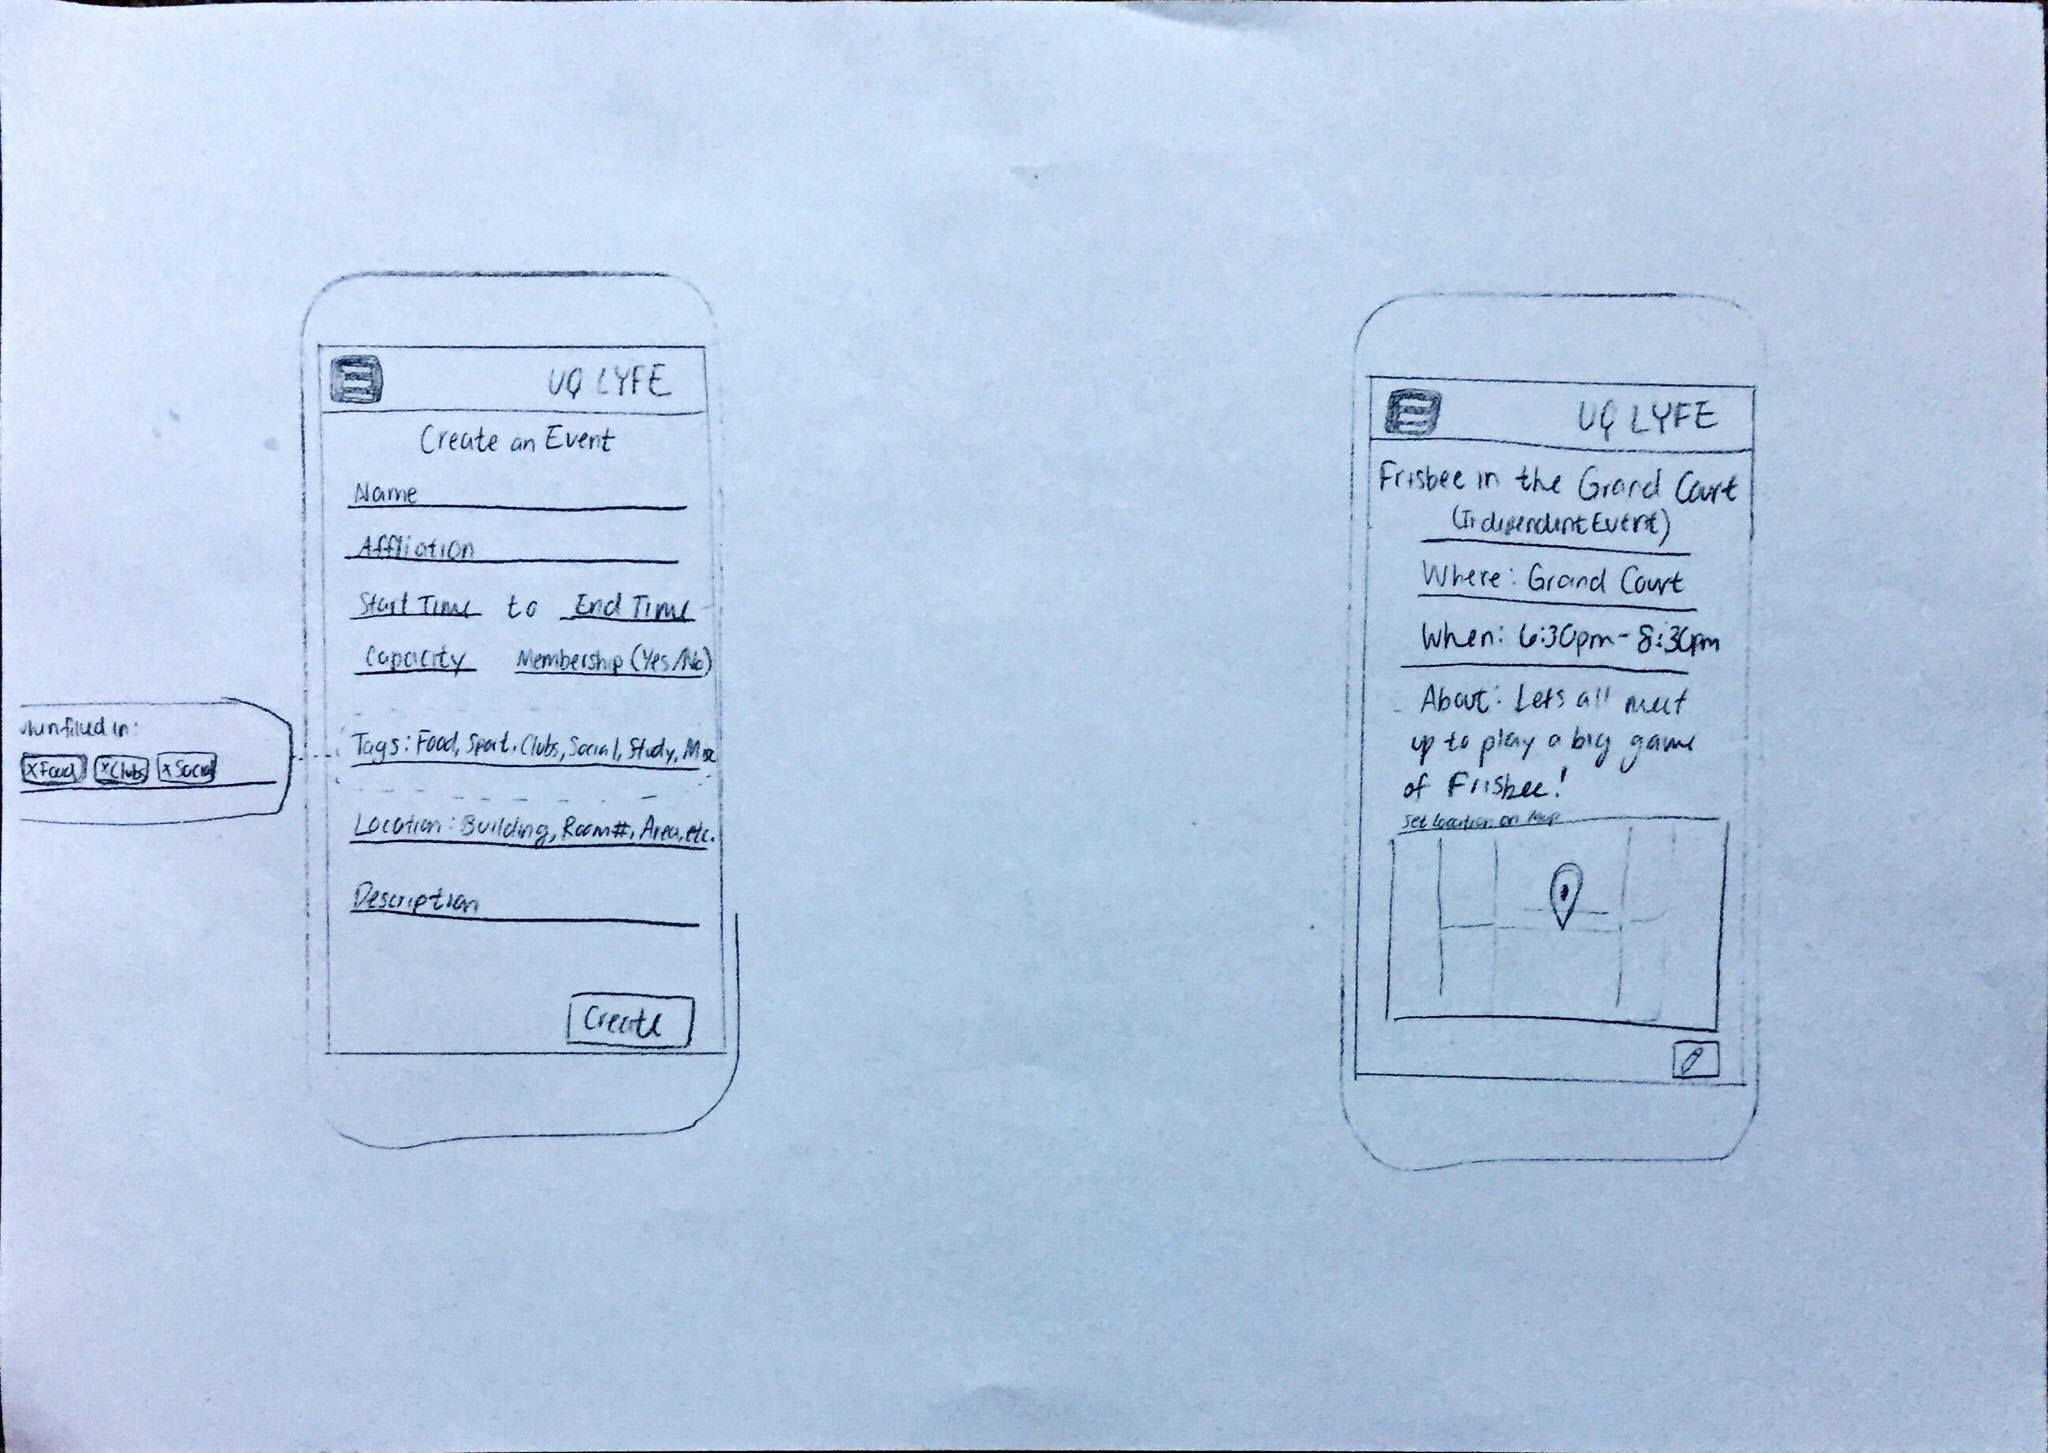 UQ LYFE
Create an Event
Name
Affliation
Start Time to End Time
Capacity Membership (Yes/No)
Tags: Food, Sport, Clubs, Social, Study, Misc
Location: Building, Room#, Area, etc.
Description
Create
when filled in:
x Food x Clubs x Social
UQ LYFE
Frisbee in the Grand Court
(Independent Event)
Where: Grand Court
When: 6:30pm - 8:30pm
About: Lets all meet
up to play a big game
of Frisbee!
Set location on Map